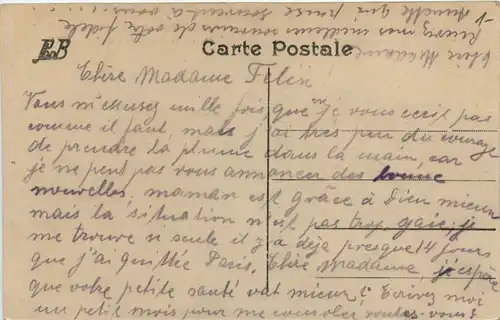 PB
Carte Postale
Chère Madame Felix
Vous m'excusez mille fois que je vous ecris pas
comme il faut, mais j'ai tres peu du courage
de prendre la plume dans la main, car
je ne peut pas vous annoncer des bonne
nouvelles, maman est grâce à Dieu mieux
mais la situation n'est pas trop gaie, je
me trouve si seule il y a déja presque 14 jours
que j'ai quittée Paris. Chère Madame, j'espère
que votre petite santé vat mieux? Ecrivez moi
un petit mois pour me consoler voulez-vous?
Chère Madame
Recevez mes meilleurs souvenirs de votre fidele
Annette qui pense souvent à vous